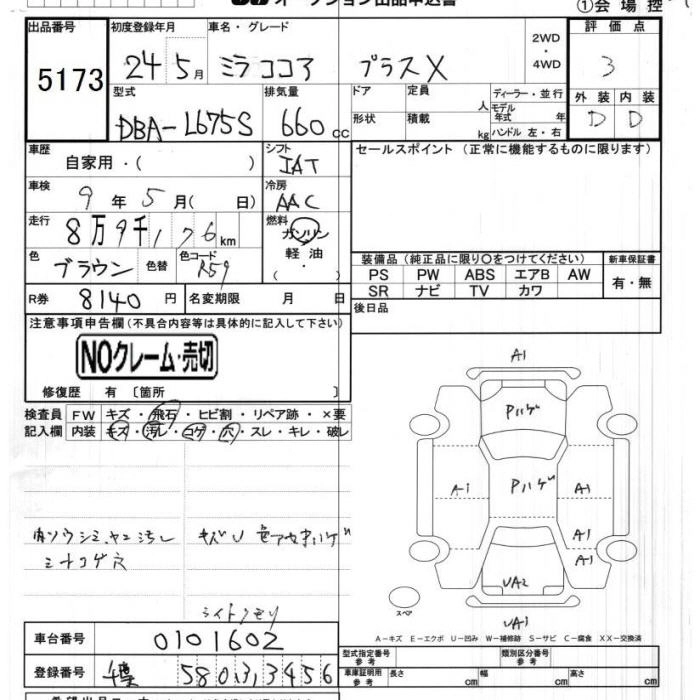 オークション出品申込書
①会場控
出品番号
5173
初度登録年月
24 5月
車名・グレード
ミラココア プラスX
2WD
・
4WD
評価点
3
型式
DBA-L675S
排気量
660 cc
ドア
定員
人
ディーラー・並行
モデル年式 年
形状
積載
kg
ハンドル 左・右
外装 内装
D D
車歴
自家用・( )
シフト
IAT
セールスポイント (正常に機能するものに限ります)
車検
9年5月( 日)
冷房
AAC
走行
8万9千176km
燃料
ガソリン
軽油
・
( )
色
ブラウン
色替
色コード
R59
装備品(純正品に限り〇をつけてください)
新車保証書
PS PW ABS エアB AW
SR ナビ TV カワ
有・無
R券
8140円
名変期限 月 日
後日品
注意事項申告欄(不具合内容等は具体的に記入して下さい)
NOクレーム・売切
修復歴 有〔箇所 〕
検査員
記入欄
FW キズ・飛石・ヒビ割・リペア跡・×要
内装 キズ・汚レ・コゲ・穴・スレ・キレ・破レ
A1
Pハゲ
A1
Pハゲ
A1
A1
A1
UA2
UA1
スペア
内ソウシミ、ヤニ汚レ
シートコゲ穴
キズU 色アセ、Pハゲ
ライトクモリ
A-キズ E-エクボ U-凹み W-補修跡 S-サビ C-腐食 XX-交換済
車台番号
0101602
登録番号
580 3 3456
型式指定番号
参考
類別区分番号
参考
車庫証明用
参考
長さ cm
幅 cm
高さ cm